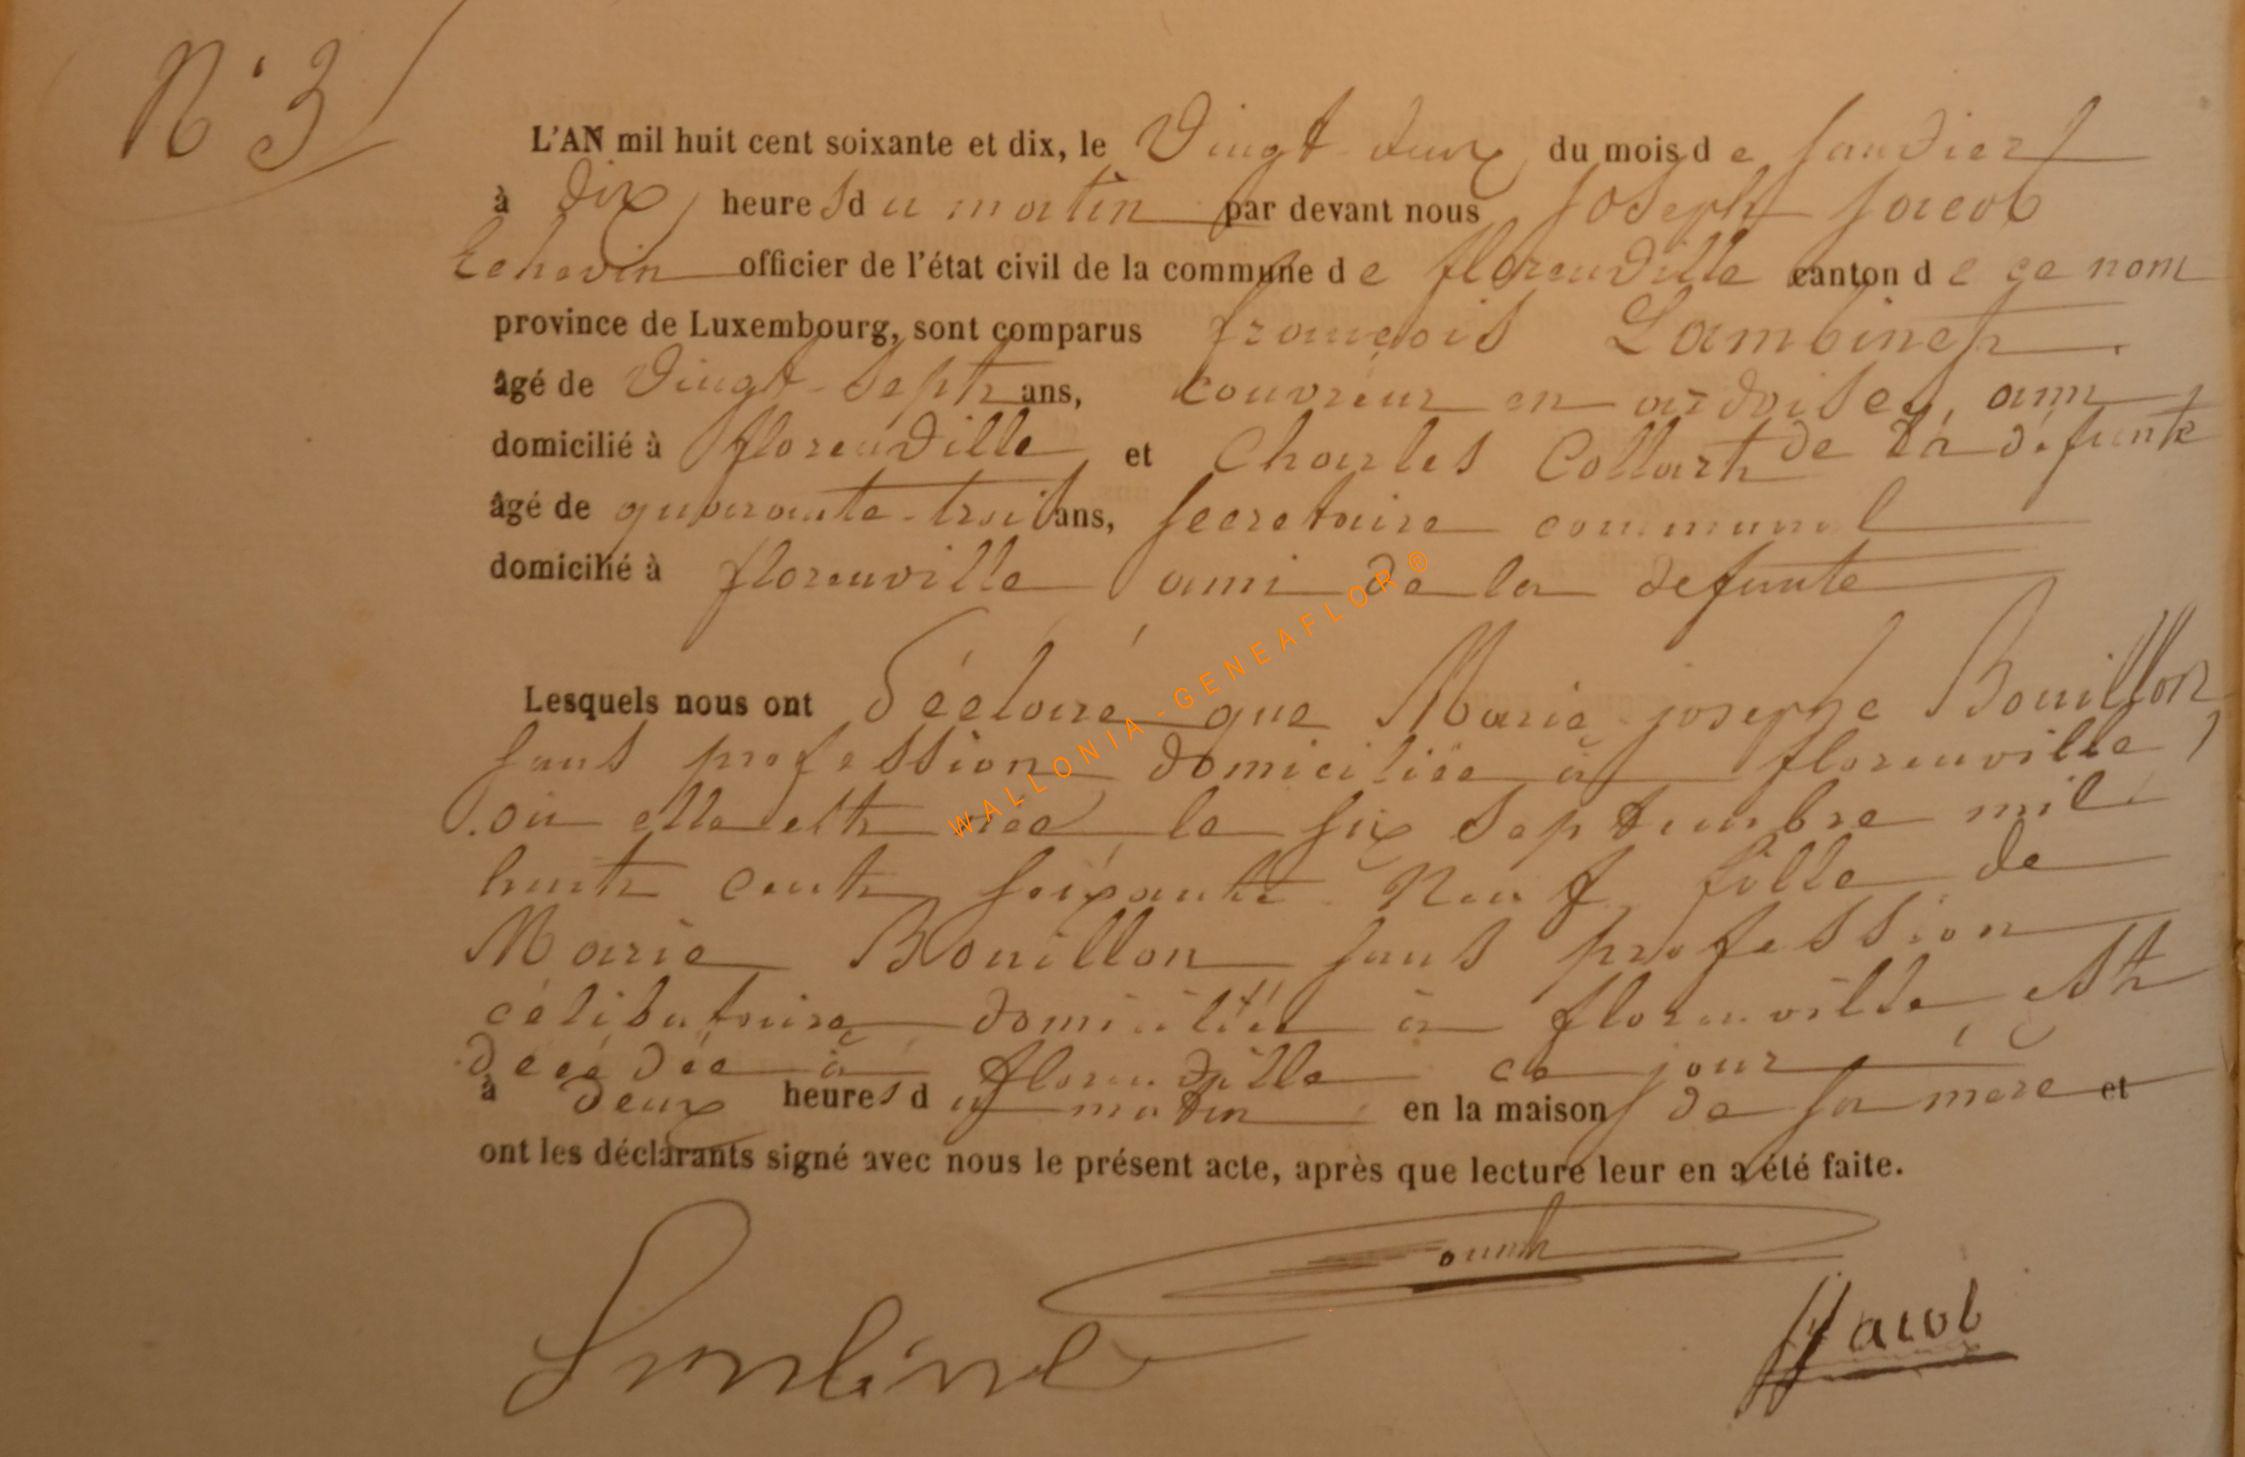 N° 3
L'AN mil huit cent soixante et dix, le Vingt-deux du mois de Janvier
à Dix heures du matin par devant nous Joseph Jacob
Echevin officier de l'état civil de la commune de florenville canton de ce nom
province de Luxembourg, sont comparus françois Lambinet
âgé de Vingt-Sept ans, couvreur en ardoises, ami
de la défunte
domicilié à florenville et Charles Collart
âgé de quarante-trois ans, Secretaire communal
domicilié à florenville ami de la defunte
Lesquels nous ont Déclaré que Marie-josephe Bouillon,
sans profession domiciliée à florenville,
où elle est née le six Septembre mil
huit cent soixante-Neuf, fille de
Marie Bouillon sans profession
célibataire domiciliée à florenville, est
décédée à florenville ce jour
à deux heures du matin en la maison de sa mère et
ont les déclarants signé avec nous le présent acte, après que lecture leur en a été faite.
Jacob
WALLONIA - GENEAFLOR ®